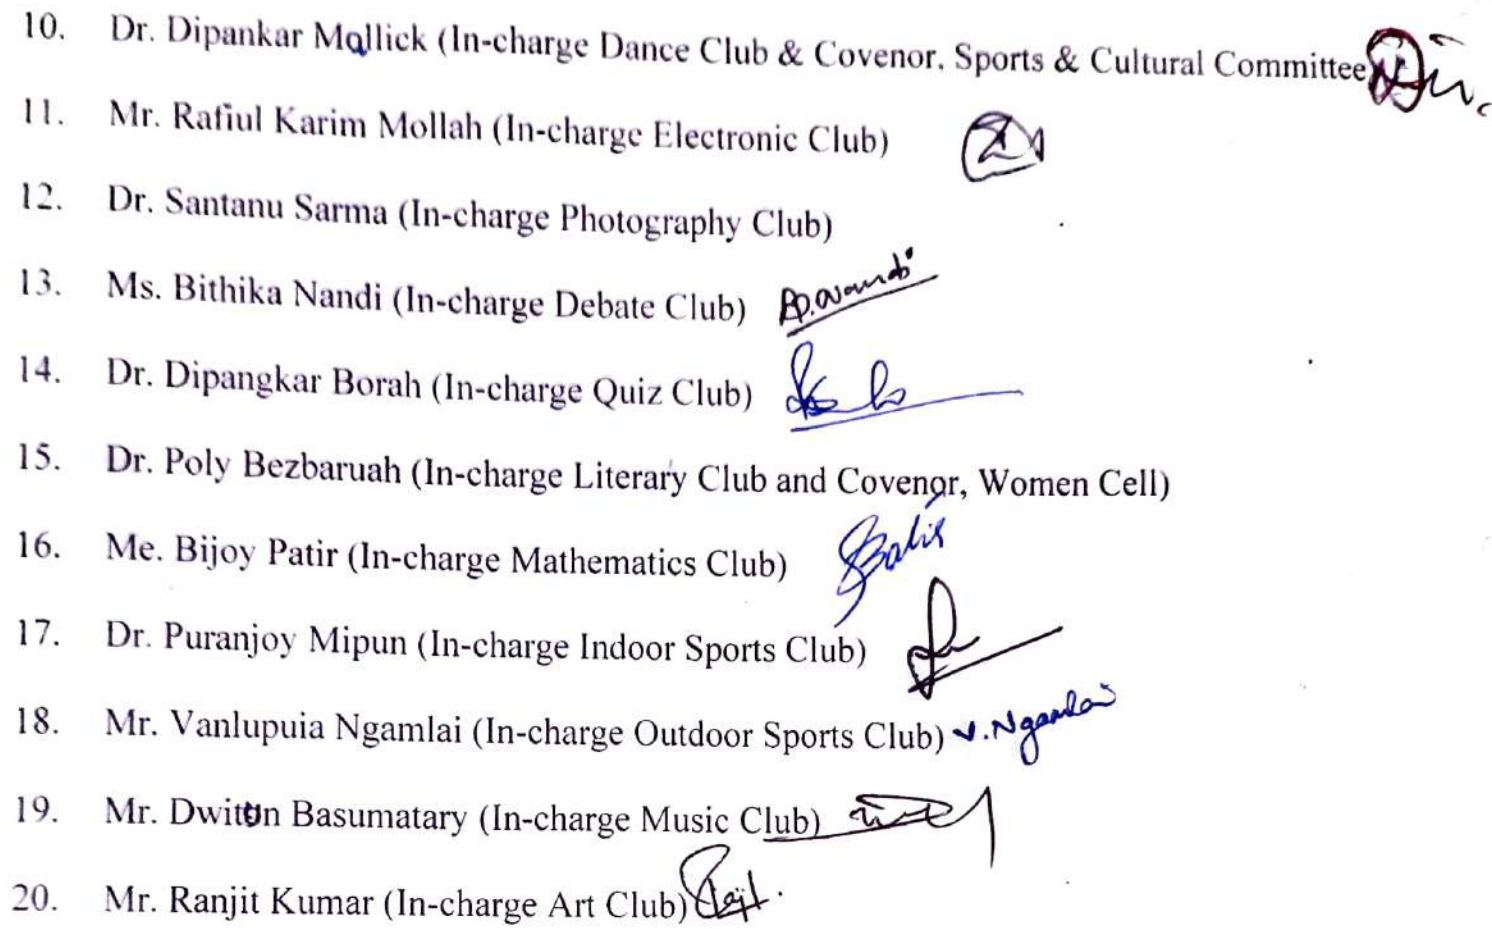 10. Dr. Dipankar Mallick (In-charge Dance Club & Covenor. Sports & Cultural Committee)
11. Mr. Rafiul Karim Mollah (In-charge Electronic Club)
12. Dr. Santanu Sarma (In-charge Photography Club)
13. Ms. Bithika Nandi (In-charge Debate Club) B. Nandi
14. Dr. Dipangkar Borah (In-charge Quiz Club)
15. Dr. Poly Bezbaruah (In-charge Literary Club and Covenor, Women Cell)
16. Me. Bijoy Patir (In-charge Mathematics Club) BPatir
17. Dr. Puranjoy Mipun (In-charge Indoor Sports Club)
18. Mr. Vanlupuia Ngamlai (In-charge Outdoor Sports Club) V. Ngamlai
19. Mr. Dwitun Basumatary (In-charge Music Club)
20. Mr. Ranjit Kumar (In-charge Art Club)